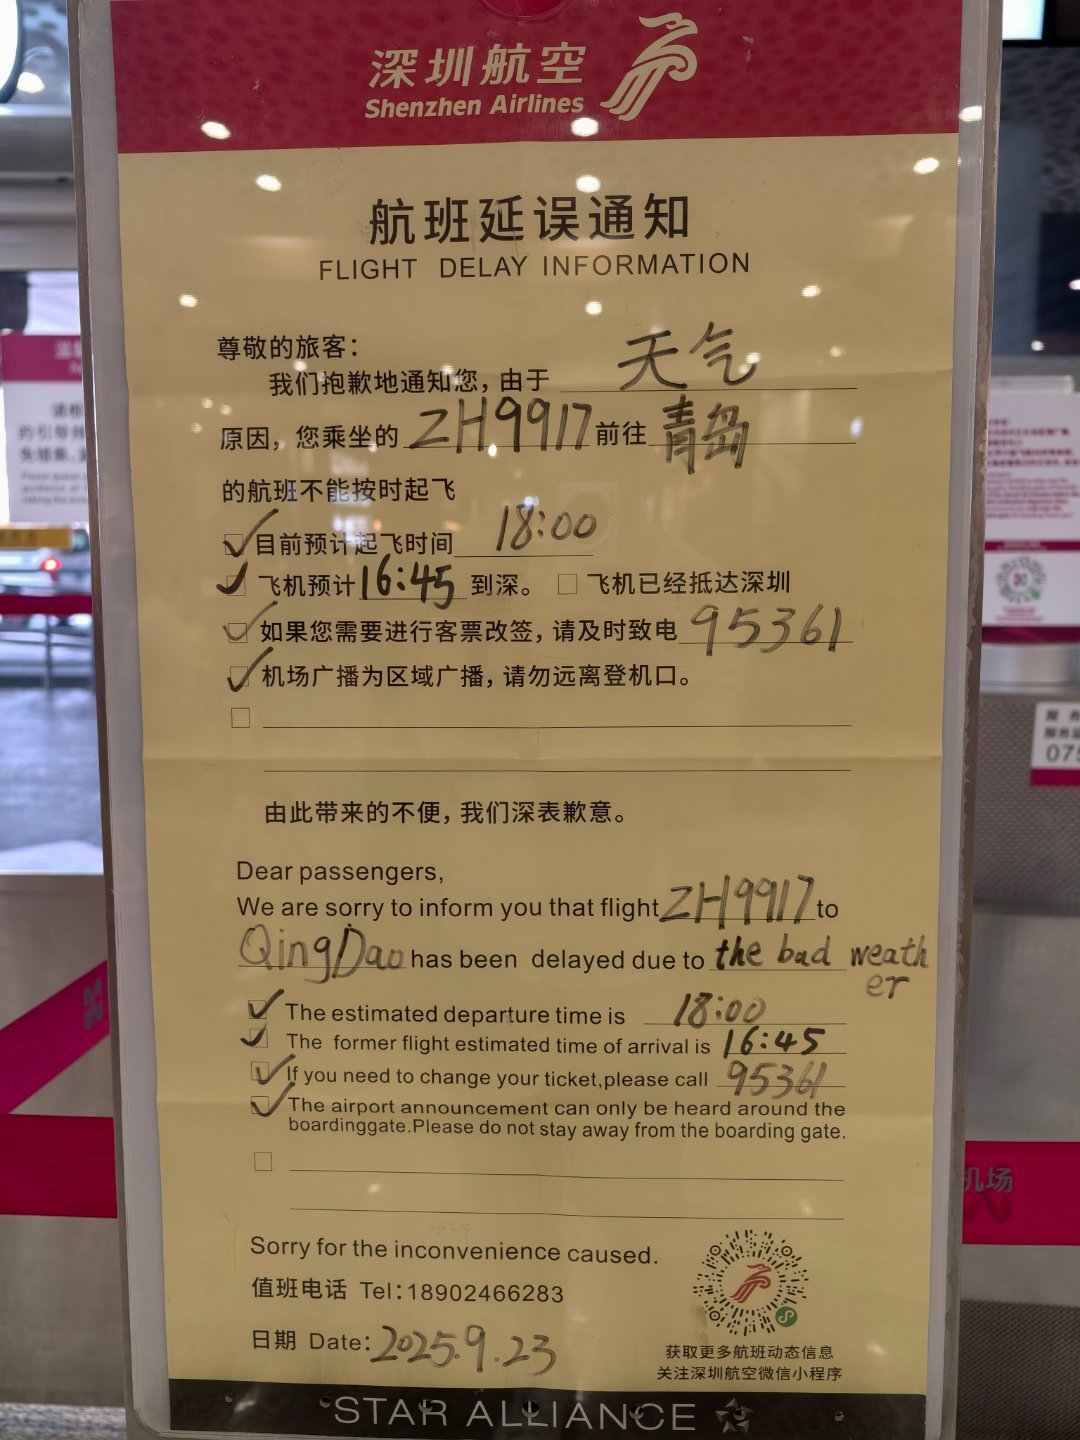 深圳航空
Shenzhen Airlines
航班延误通知
FLIGHT DELAY INFORMATION
尊敬的旅客：
我们抱歉地通知您，由于 天气
原因，您乘坐的 ZH9917 前往 青岛
的航班不能按时起飞
目前预计起飞时间 18:00
飞机预计 16:45 到深。 飞机已经抵达深圳
如果您需要进行客票改签，请及时致电 95361
机场广播为区域广播，请勿远离登机口。
由此带来的不便，我们深表歉意。
Dear passengers,
We are sorry to inform you that flight ZH9917 to
QingDao has been delayed due to the bad weather
The estimated departure time is 18:00
The former flight estimated time of arrival is 16:45
If you need to change your ticket,please call 95361
The airport announcement can only be heard around the
boardinggate.Please do not stay away from the boarding gate.
Sorry for the inconvenience caused.
值班电话 Tel：18902466283
日期 Date：2025.9.23
获取更多航班动态信息
关注深圳航空微信小程序
STAR ALLIANCE
机场